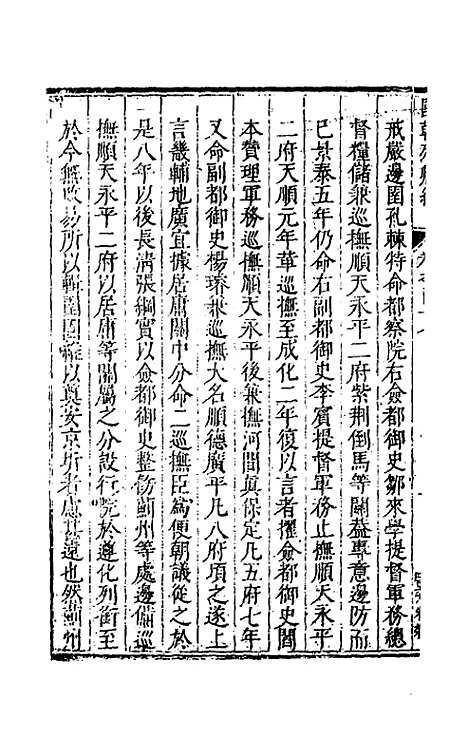 戒嚴邊圉孔棘特命都察院右僉都御史鄒來學提督軍務總
督糧儲兼巡撫順天永平二府紫荆倒馬等關益專意邊防而
已景泰五年仍命右副都御史李賓提督軍務止撫順天永平
二府天順元年革巡撫至成化二年復以言者擢僉都御史閻
本贊理軍務巡撫順天永平後兼撫河間眞保定凡五府七年
又命副都御史楊璿兼巡撫大名順德廣平凡八府項之遂上
言畿輔地廣宜據居庸關中分命二巡撫臣爲便朝議從之於
是八年以後長清張綱實以僉都御史整飭薊州等處邊備巡
撫順天永平二府以居庸等關屬之分設行院於遵化列銜至
於今無改易所以以奠安京所者慮其遠也然薊州